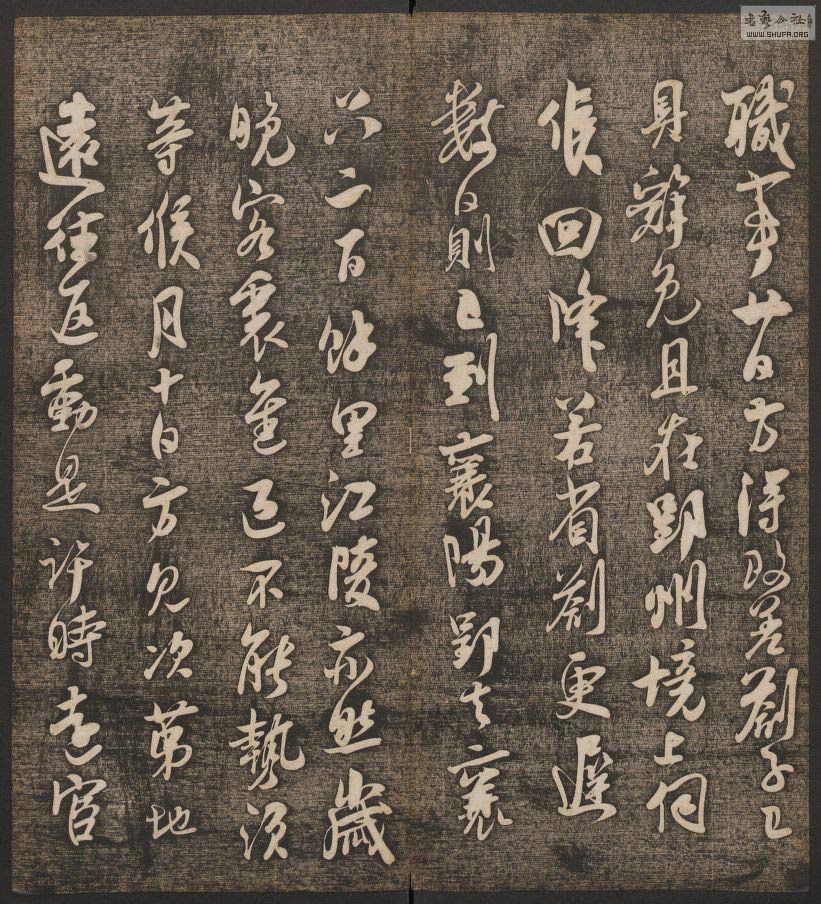 職事廿日方得改差劄子已
具辭免且在郢州境上伺
候回降若省劄更遲
數日則已到襄陽郢去襄
只二百餘里江陵亦然歲
晚客裏進退不能勢須
等候月十日方見次第地
遠往返動是許時遠官
書藝公社
WWW.SHUFA.ORG